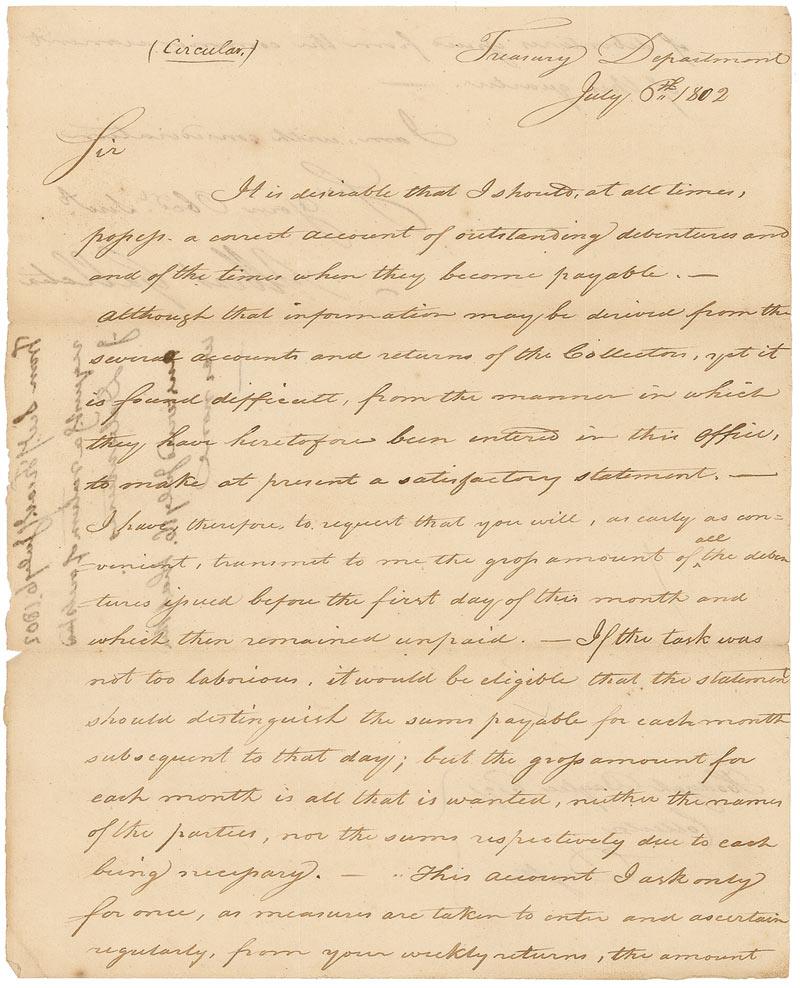 (Circular.)
Treasury Department
July 6th. 1802
Sir
It is desirable that I should, at all times,
possess. a correct account of outstanding debentures and
and of the times when they become payable. —
Although that information may be derived from the
several accounts and returns of the Collectors, yet it
is found difficult, from the manner in which
they have heretofore been entered in this Office,
to make at present a satisfactory statement. —
I have, therefore, to request that you will, as early as con=
venient, transmit to me the gross amount of all the deben
tures issued before the first day of this month and
which then remained unpaid. — If the task was
not too laborious, it would be eligible that the statement
should distinguish the sums payable for each month
subsequent to that day; but the gross amount for
each month is all that is wanted, neither the names
of the parties, nor the sums respectively due to each
being necessary. — This account I ask only
for once, as measures are taken to enter and ascertain
regularly, from your weekly returns, the amount